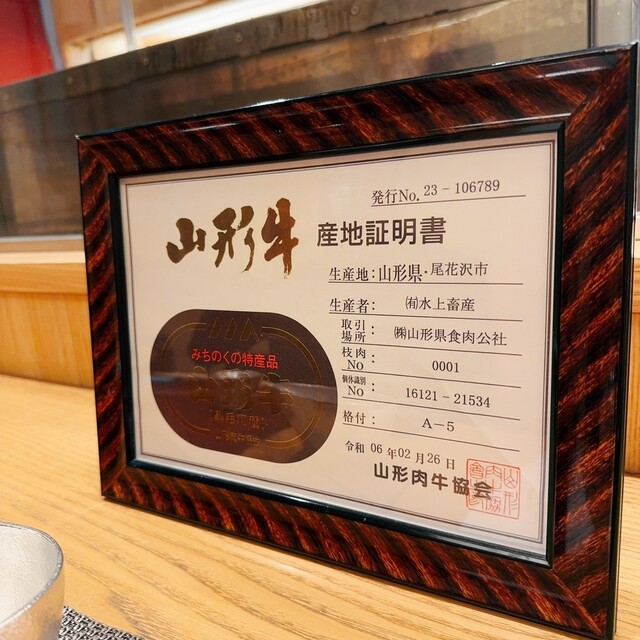 発行No. 23-106789
山形牛 産地証明書
生産地：山形県・尾花沢市
生産者：㈲水上畜産
取引場所：㈱山形県食肉公社
枝肉NO：0001
個体識別NO：16121-21534
格付：A-5
令和 06年02月26日
山形肉牛協会
みちのくの特産品
山形牛
黒毛和種牛